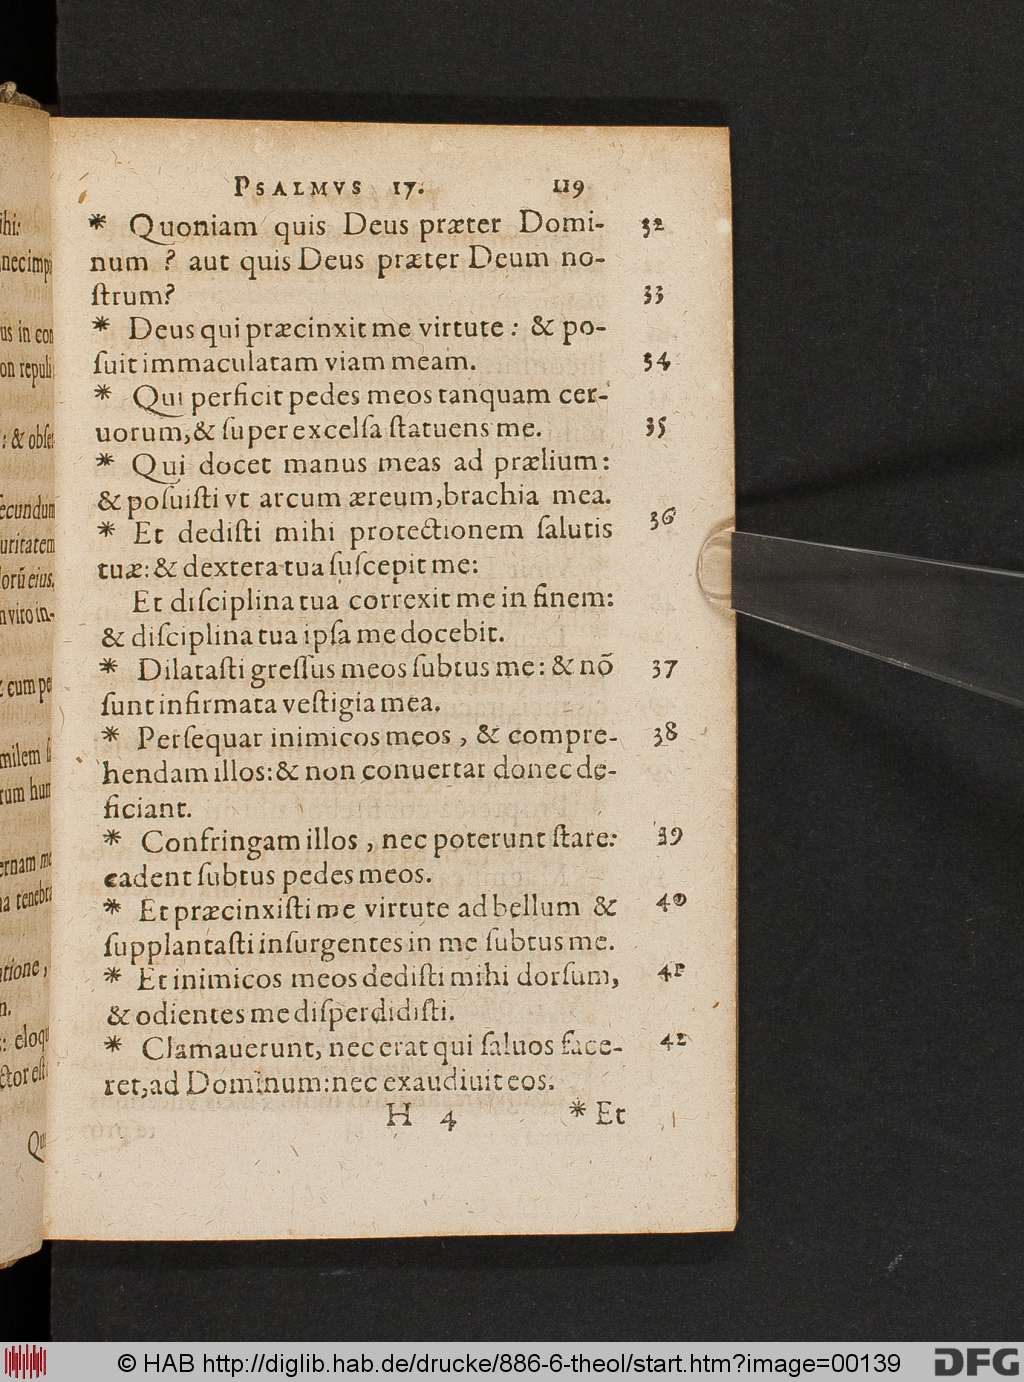 ihi:
nec impi
us in con
on repuli
: & obse
secundum
uritatem
lorũ eius.
n viro in-
& cum pe
milem
rum hum
ernam me
na tenebra
tione,
n.
: eloq
ctor est
Qu
PSALMVS 17. 119
* Quoniam quis Deus præter Domi- 32
num ? aut quis Deus præter Deum no-
ſtrum? 33
* Deus qui præcinxit me virtute : & po-
ſuit immaculatam viam meam. 34
* Qui perficit pedes meos tanquam cer-
uorum,& ſuper excelſa ſtatuens me. 35
* Qui docet manus meas ad prælium:
& poſuiſti vt arcum æreum,brachia mea.
* Et dediſti mihi protectionem ſalutis 36
tuæ: & dextera tua ſuſcepit me:
Et diſciplina tua correxit me in finem:
& diſciplina tua ipſa me docebit.
* Dilataſti greſſus meos ſubtus me: & nõ 37
ſunt infirmata veſtigia mea.
* Perſequar inimicos meos , & compre- 38
hendam illos: & non conuertar donec de-
ficiant.
* Confringam illos , nec poterunt ſtare: 39
cadent ſubtus pedes meos.
* Et præcinxiſti me virtute ad bellum & 40
ſupplantaſti inſurgentes in me ſubtus me.
* Et inimicos meos dediſti mihi dorſum, 41
& odientes me diſperdidiſti.
* Clamauerunt, nec erat qui ſaluos face- 42
ret,ad Dominum:nec exaudiuit eos.
H 4 * Et
© HAB http://diglib.hab.de/drucke/886-6-theol/start.htm?image=00139 DFG